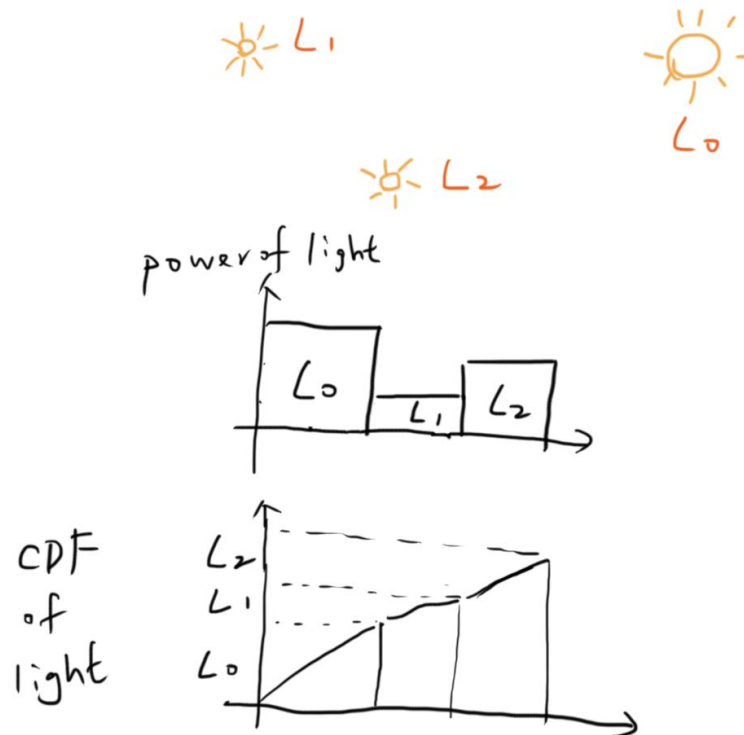 L₁
L₀
L₂
power of light
L₀
L₁
L₂
CDF
of
light
L₂
L₁
L₀